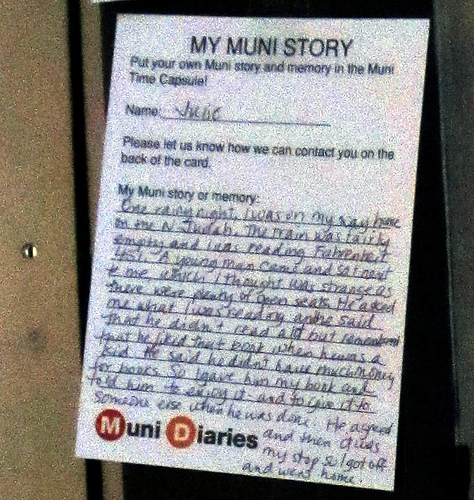 MY MUNI STORY
Put your own Muni story and memory in the Muni
Time Capsule!
Name: Julie
Please let us know how we can contact you on the
back of the card.
My Muni story or memory:
One rainy night, I was on my way home
on the N Judah. The train was fairly
empty and I was reading Fahrenheit
451. A young man came and sat next
to me which I thought was strange as
there were plenty of open seats. He asked
me what I was reading and he said
that he didn't read a lot but remembered
that he liked that book when he was a
kid. He said he didn't have much money
for books. So I gave him my book and
told him to enjoy it and to give it to
someone else when he was done. He agreed
and then
my stop so I got off
and went home.
Muni Diaries